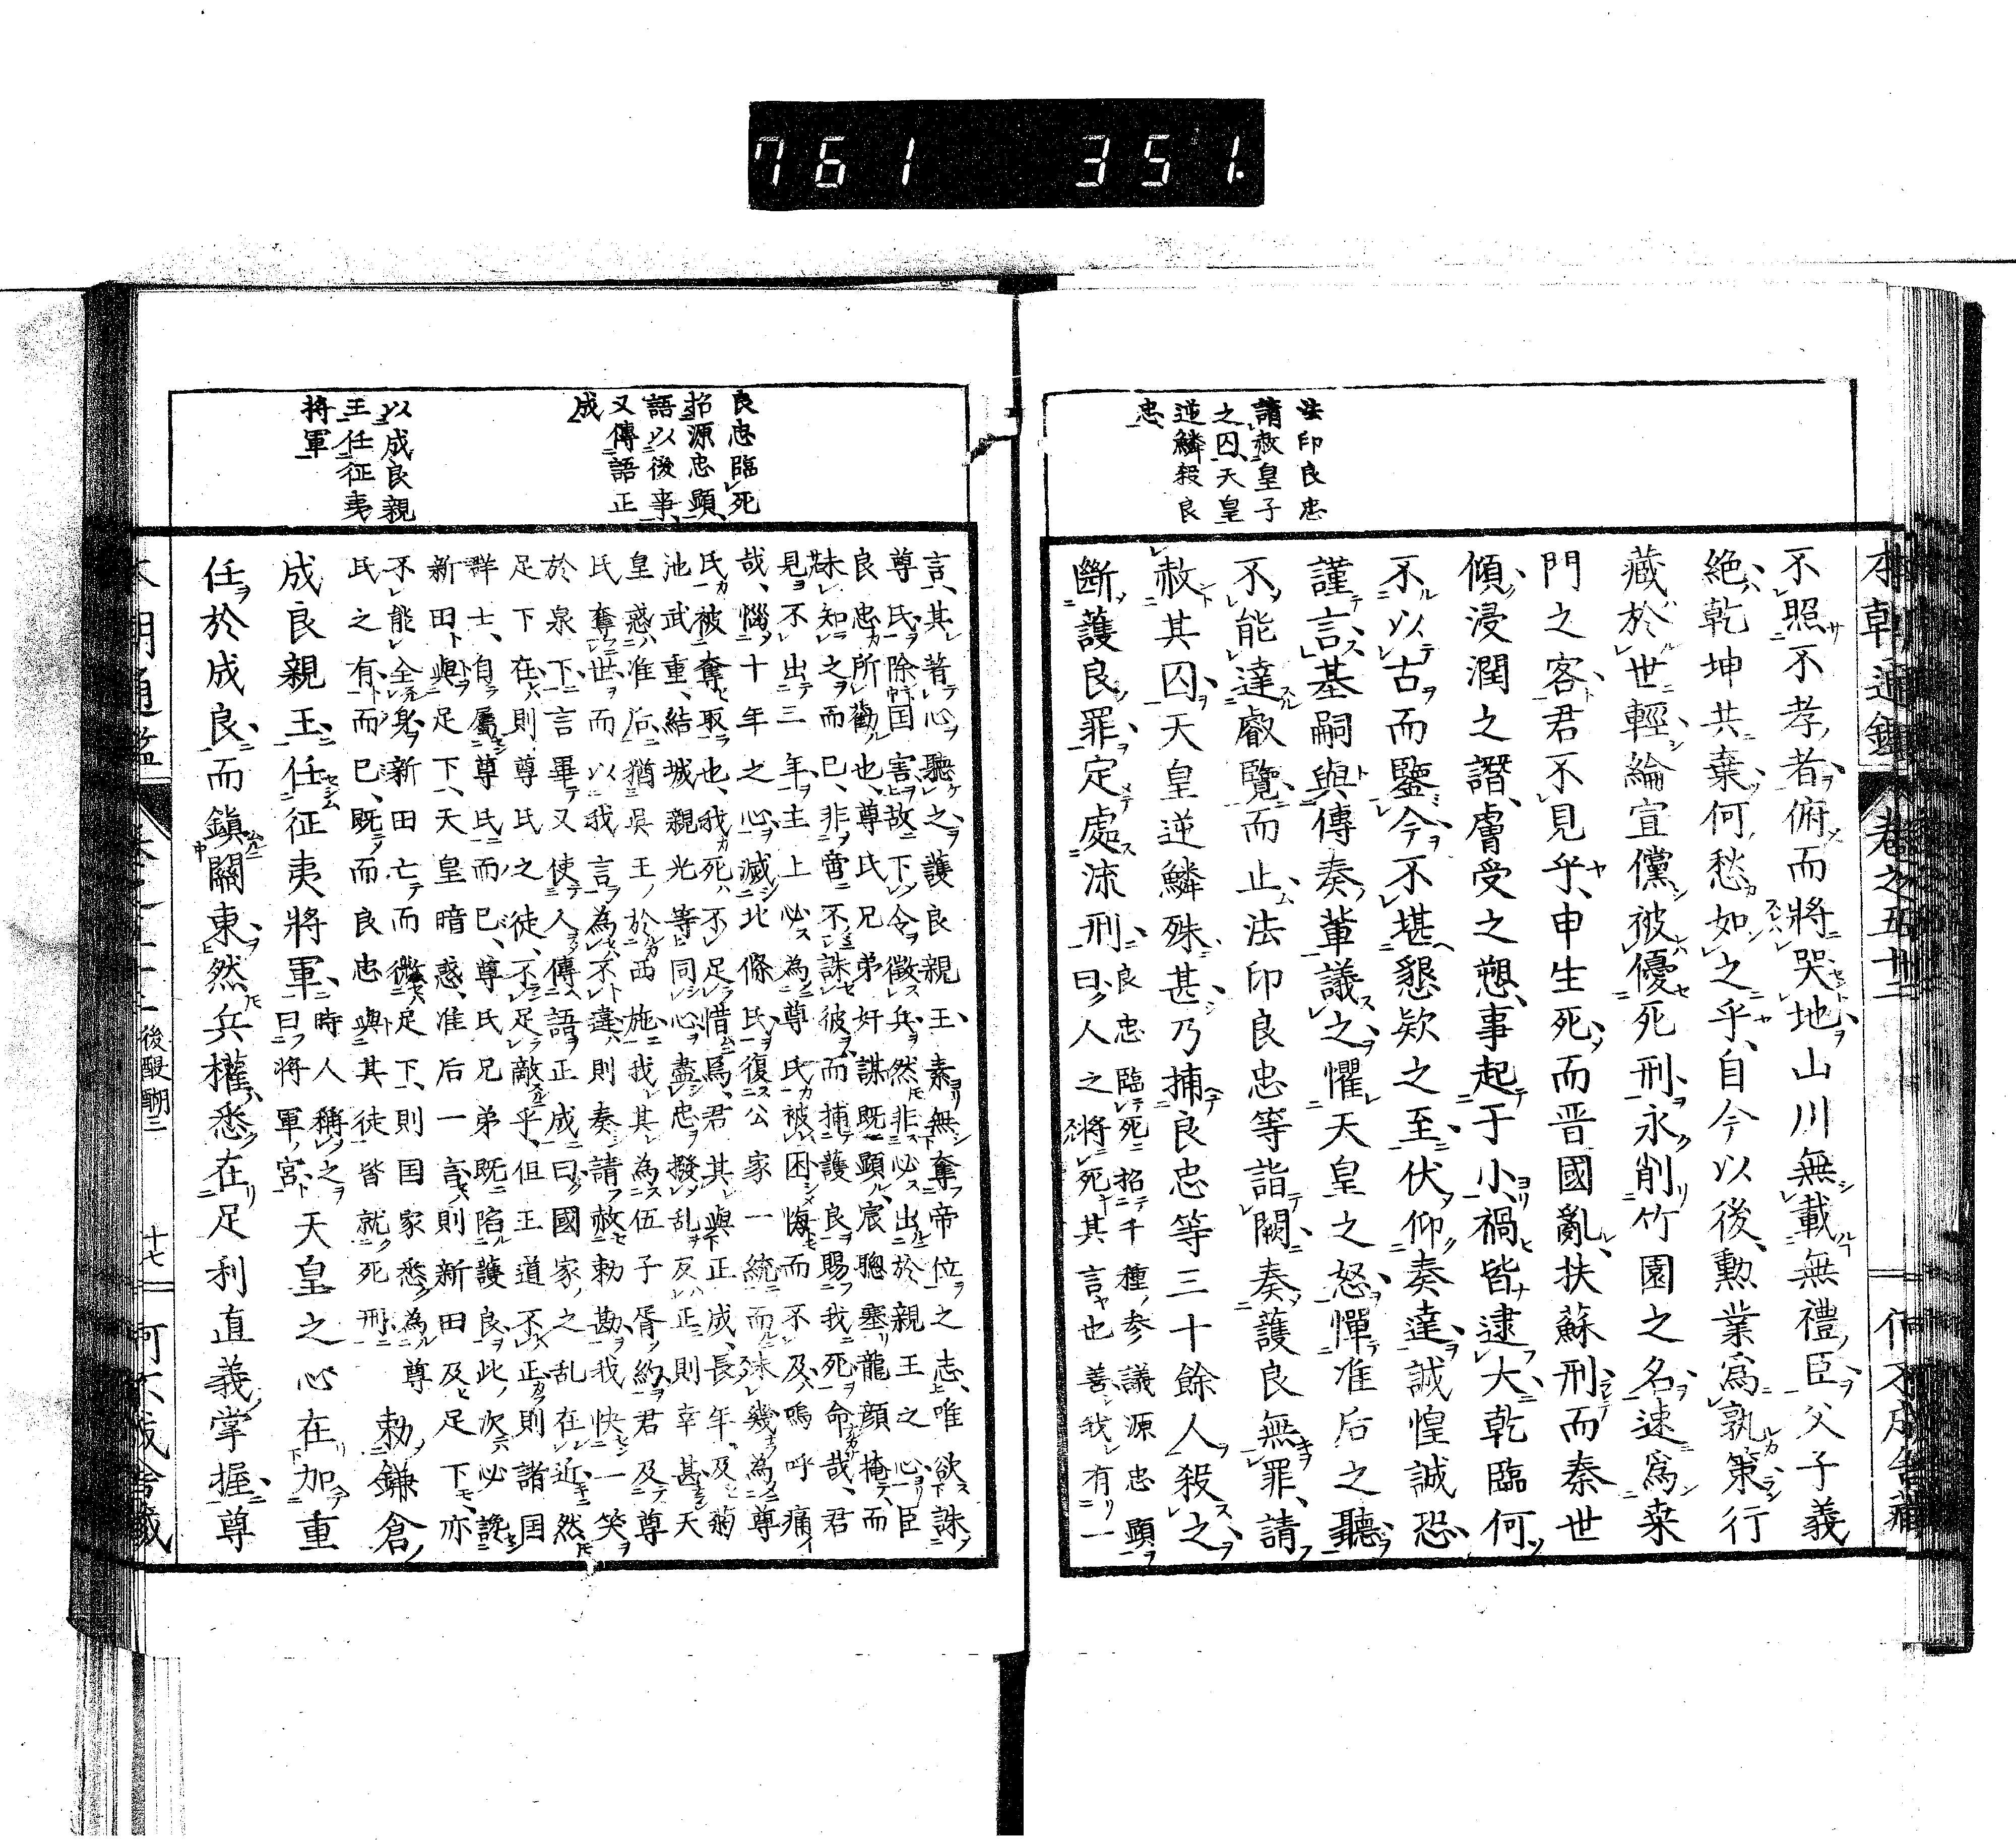 761 351.
本朝通鑑 卷之五十三
法印良忠
請赦皇子
之囚天皇
逆鱗殺良
忠
不照不孝者俯而將哭地山川無載無禮臣父子義
絶乾坤共棄何愁如之乎自今以後勲業爲孰策行
藏於世輕綸宣儻被優死刑永削竹園之名速爲桒
門之客君不見乎申生死而晋國亂扶蘇刑而秦世
傾浸潤之譖膚受之愬事起于小禍皆逮大乾臨何
不以古而鑒今不堪懇欵之至伏仰奏達誠惶誠恐
謹言基嗣與傳奏輩議之懼天皇之怒憚准后之聽
不能達叡覽而止法印良忠等詣闕奏護良無罪請
赦其囚天皇逆鱗殊甚乃捕良忠等三十餘人殺之
斷護良罪定處流刑
良忠臨死招千種參議源忠顯
曰人之將死其言也善我有一
良忠臨死
招源忠顯
語以後事
又傳語正
成
以成良親
王任征夷
將軍
言其著心聽之護良親王素無奪帝位之志唯欲誅
尊氏除国害故下令徵兵然非必出於親王之心臣
良忠所勸也尊氏兄弟奸謀既顯宸聰塞龍顔掩而
未知之而已非啻不誅彼而捕護良賜我死命哉君
見不出三年主上必為尊氏被困悔而不及嗚呼痛
哉惱十年之心滅北條氏復公家一統而未幾為尊
氏被奪取也我死不足惜焉君其與正成長年及菊
池武重結城親光等同心盡忠撥乱反正則幸甚天
皇惑准后猶吳王於西施我其為伍子胥約君及尊
氏奪世而以我言為不違則奏請赦勅勘我快一笑
於泉下言畢又使人傳語正成曰國家之乱在近然
足下在則尊氏之徒不足敵乎但王道不正則諸国
群士自屬尊氏而已尊氏兄弟既陷護良此次必讒
新田與足下天皇暗惑准后一言則新田及足下亦
不能全身新田亡而微足下則国家悉為尊
氏之有而已既而良忠與其徒皆就死刑
勅鎌倉
成良親王任征夷將軍
時人稱之
曰將軍宮
天皇之心在加重
任於成良而鎭關東然兵權悉在足利直義掌握尊
後醍醐二
十七